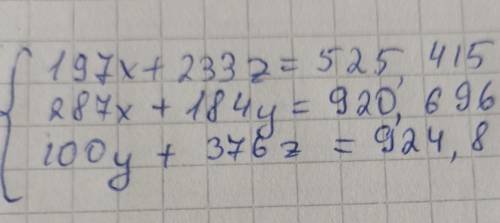 197x + 233z = 525,415
287x + 184y = 920,696
100y + 376z = 924,8